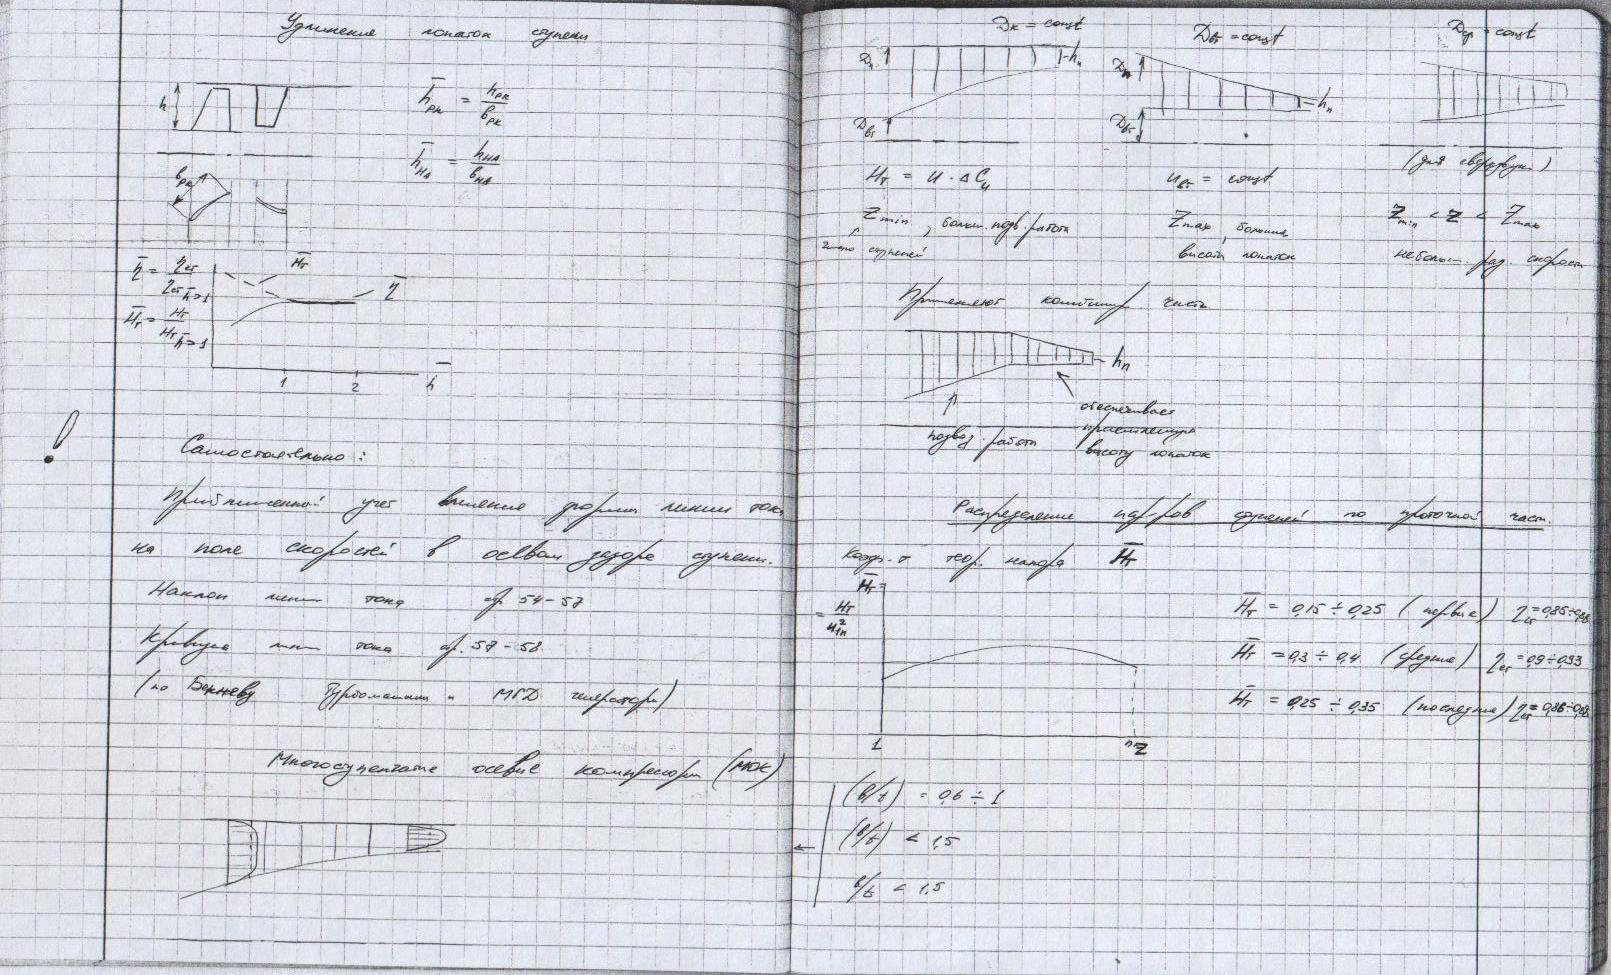 Удлинение лопаток ступени
h
h̄рк = hрк / bрк
h̄НА = hНА / bНА
bрк
η̄ = ηст / ηст h̄=1
H̄т = Hт / Hт h̄=1
H̄т
η̄
1 2 h̄
!
Самостоятельно:
Приближенный учет влияния формы линии тока
на поле скоростей в осевом зазоре ступени.
Наклон линии тока стр. 54-57
Кривизна линии тока стр. 57-58
(по Бекневу Турбомашины и МГД генераторы)
Многоступенчатые осевые компрессоры (МОК)
Dк = const
Dвт = const
Dср = const
Dк
hп
Dвт
Dк
hп
Dвт
(для сверхзвук.)
Hт = u · ΔCu
uвт = const
Zmin, больш. подв. работа
число ступеней
Zmax, большие
высоты лопаток
Zmin < Z < Zmax
небольш. рад. скорости
Применяют комбинир. части
hп
подвод. работа
обеспечивает
приемлемую
высоту лопаток
Распределение пар-ров ступеней по проточной части.
Коэф-т теор. напора H̄т
H̄т
= Hт / u²1п
1 Z
H̄т = 0,15 ÷ 0,25 (первые) ηст = 0,85÷0,88
H̄т = 0,3 ÷ 0,4 (средние) ηст = 0,9÷0,93
H̄т = 0,25 ÷ 0,35 (последние) ηст = 0,86÷0,88
(b/t) = 0,6 ÷ 1
(b/t) < 1,5
b/t < 1,5